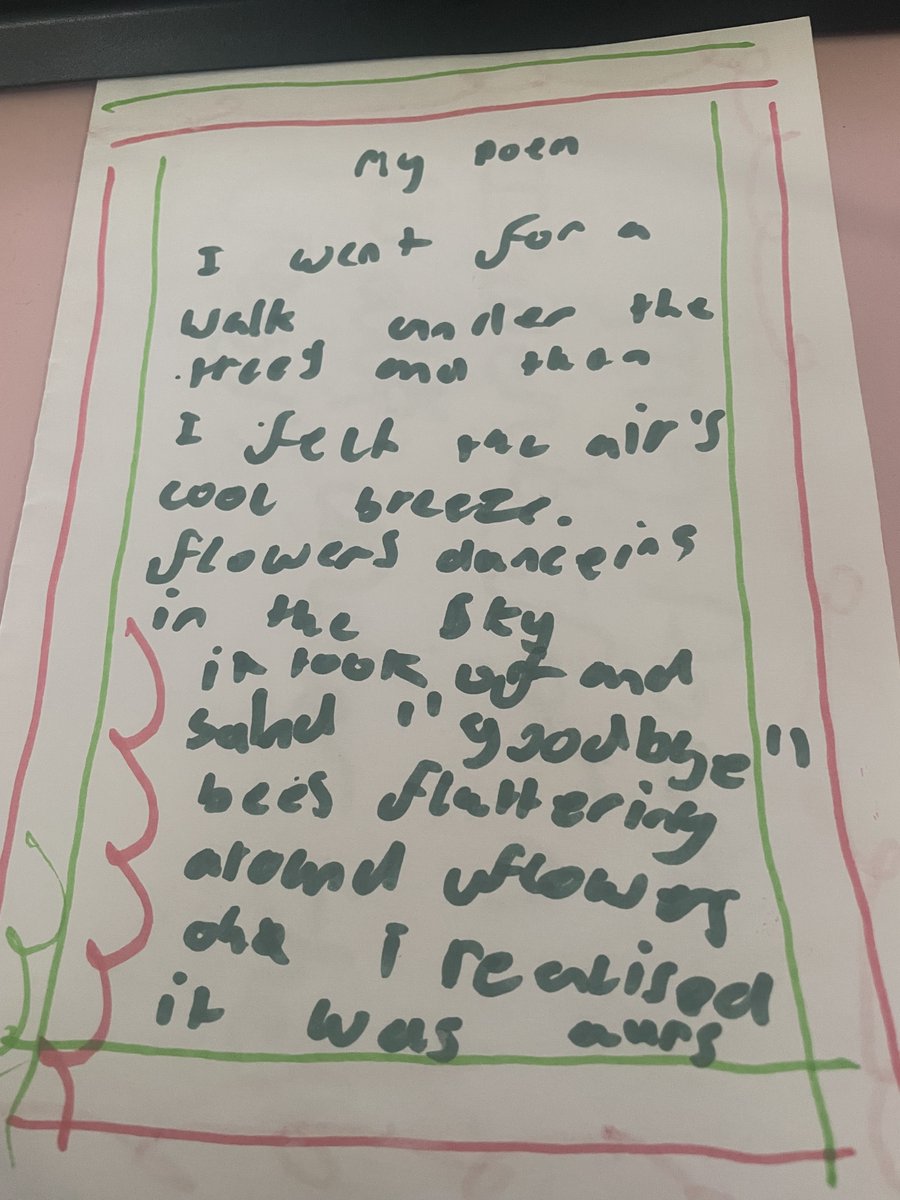 My poem
I went for a
walk under the
trees and then
I felt the air's
cool breeze.
flowers danceing
in the sky
it took of and
said "goodbye"
bees flattering
around flowers
I realised
it was ours